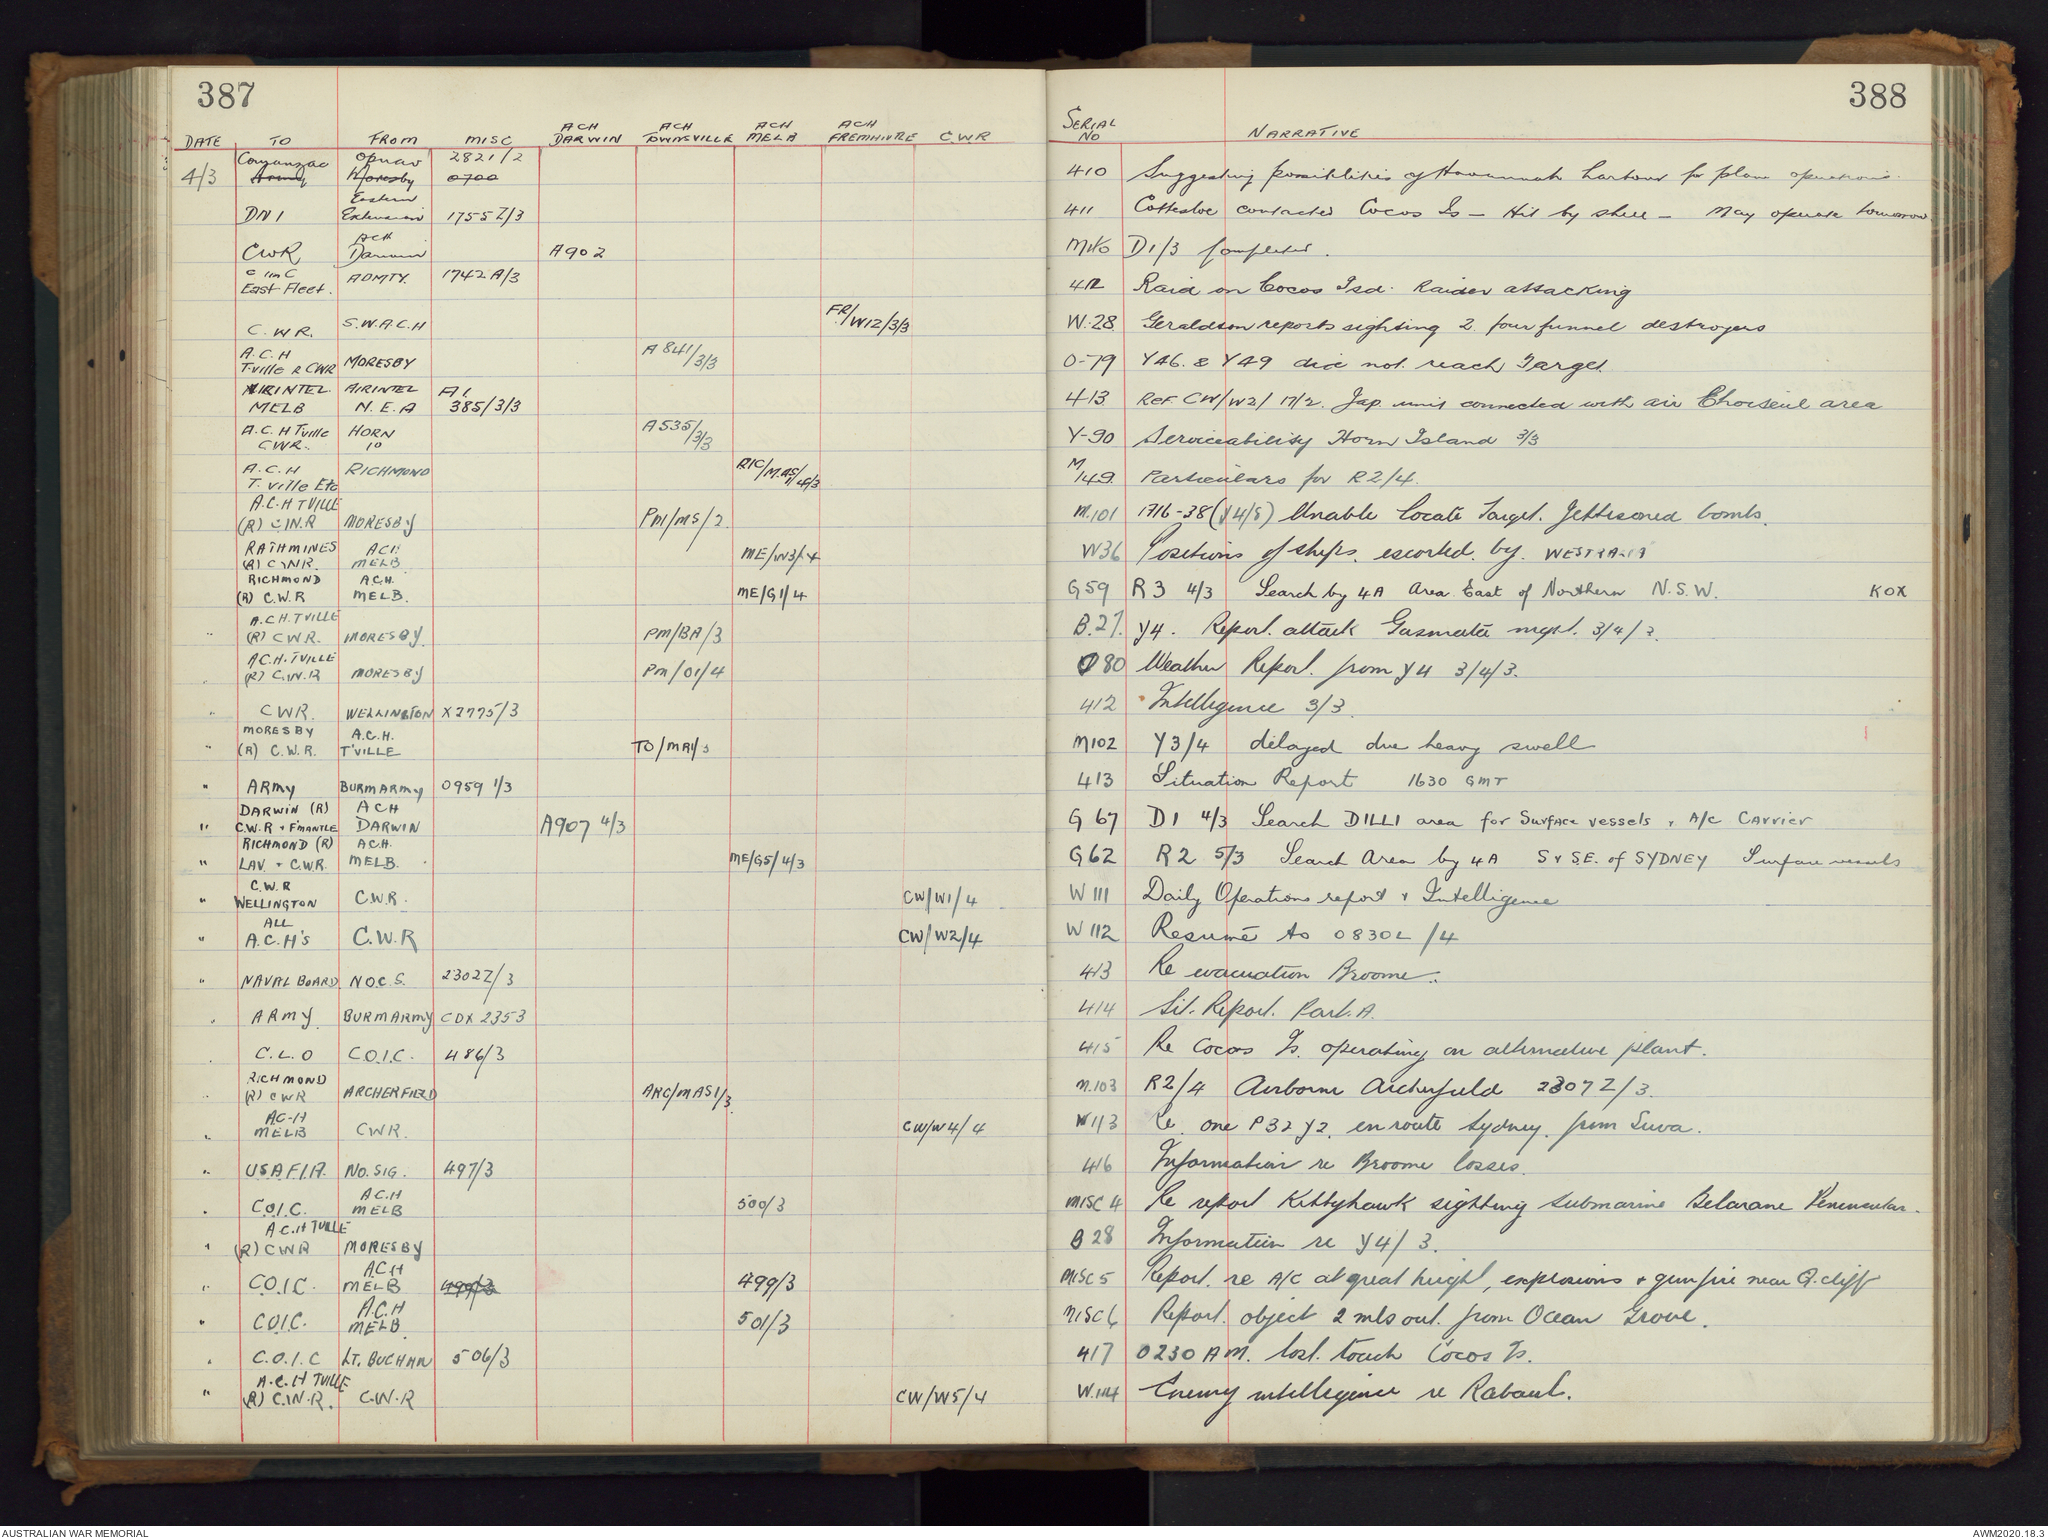 387
DATE TO FROM MISC ACH DARWIN ACH TOWNSVILLE ACH MELB ACH FREMANTLE C.W.R
4/3 Comanzac Opnav 2821/2
Army Moresby 0700
DNI Eastern Extension 1755Z/3
CWR ACH Darwin A902
C in C East Fleet. ADMTY. 1742A/3
C.W.R. S.W.A.C.H FR/W12/3/3
A.C.H T-ville R CWR MORESBY A841/3/3
AIRINTEL MELB AIRINTEL N.E.A AI. 385/3/3
A.C.H Tville CWR. HORN IO A535/3/3
A.C.H T. ville Etc RICHMOND RIC/MAS1/4/3
A.C.H TVILLE (R) C.W.R MORESBY PM/M5/2
RATHMINES (R) C.W.R. ACH MELB ME/W3/4
RICHMOND (R) C.W.R A.C.H. MELB. ME/G1/4
" A.C.H. TVILLE (R) C.W.R. MORESBY. PM/BA/3
" A.C.H. TVILLE (R) C.W.R MORESBY PM/O1/4
" CWR. WELLINGTON X2775/3
" MORESBY (R) C.W.R. A.C.H. T'VILLE TO/MA1/3
" ARMY BURMARMY 0959 1/3
" DARWIN (R) C.W.R + F'MANTLE ACH DARWIN A907 4/3
" RICHMOND (R) LAV + C.W.R. A.C.H. MELB. ME/G5/4/3
" C.W.R WELLINGTON C.W.R. CW/W1/4
" ALL A.C.H's C.W.R CW/W2/4
" NAVAL BOARD N.O.C.S. 2302Z/3
" ARMY BURMARMY CDX 2353
" C.L.O C.O.I.C. 486/3
" RICHMOND (R) CWR ARCHERFIELD ARC/MAS1/3
" A.C.H MELB CWR. CW/W4/4
" U.S.A.F.I.A. NO. SIG. 497/3
" C.O.I.C. A.C.H MELB 500/3
" A.C.H TVILLE (R) CWR MORESBY
" C.O.I.C. A.C.H MELB 499/3 499/3
" C.O.I.C. A.C.H MELB. 501/3
" C.O.I.C LT. BUCHAN 506/3
" A.C.H TVILLE (R) C.W.R. C.W.R CW/W5/4
388
SERIAL NO NARRATIVE
410 Suggesting possibilities of Havannah harbour for plane operations.
411 Cottesloe contacted Cocos Is - Hit by shell - May operate tomorrow
M140 D1/3 Completed.
412 Raid on Cocos Isd. Raider attacking
W.28 Geraldton reports sighting 2 four funnel destroyers
O-79 Y46. & Y49 did not reach Target.
413 Ref. CW/W2/17/2. Jap. unit connected with air Choiseul area
Y-90 Serviceability Horn Island 3/3
M/149 Particulars for R2/4.
M.101 1716-38 (Y4/3) Unable locate Target. Jettisoned bombs.
W36 Positions of ships. escorted. by. WESTRALIA
G59 R3 4/3 Search by 4A Area East of Northern N.S.W. KOX
B.27. Y4. Report. attack Gasmata 3/4/3.
O80 Weather Report. from Y4 3/4/3.
412 Intelligence 3/3.
M102 Y3/4 delayed due heavy swell
413 Situation Report 1630 GMT
G 67 D1 4/3 Search DILLI area for Surface vessels + A/C Carrier
G62 R2 5/3 Search Area by 4A S & S.E. of SYDNEY Surface vessels
W 111 Daily Operations report + Intelligence
W 112 Resumé to 0830L/4
413 Re evacuation Broome.
414 Sit. Report. Part. A.
415 Re Cocos Is. operating on alternative plant.
M.103 R2/4 Airborne Archerfield 2307Z/3.
W113 Re. one P32 Y2. en route Sydney. from Suva.
416 Information re Broome losses.
MISC 4 Re report Kittyhawk sighting submarine Belarane Penensular.
B 28 Information re Y4/3.
MISC 5 Report. re A/C at great height, explosions + gunfire near Q.cliff
MISC 6 Report. object 2 mls out. from Ocean Grove.
417 0230 A M. lost. touch Cocos Is.
W.114 Enemy intelligence re Rabaul.
AUSTRALIAN WAR MEMORIAL AWM2020.18.3